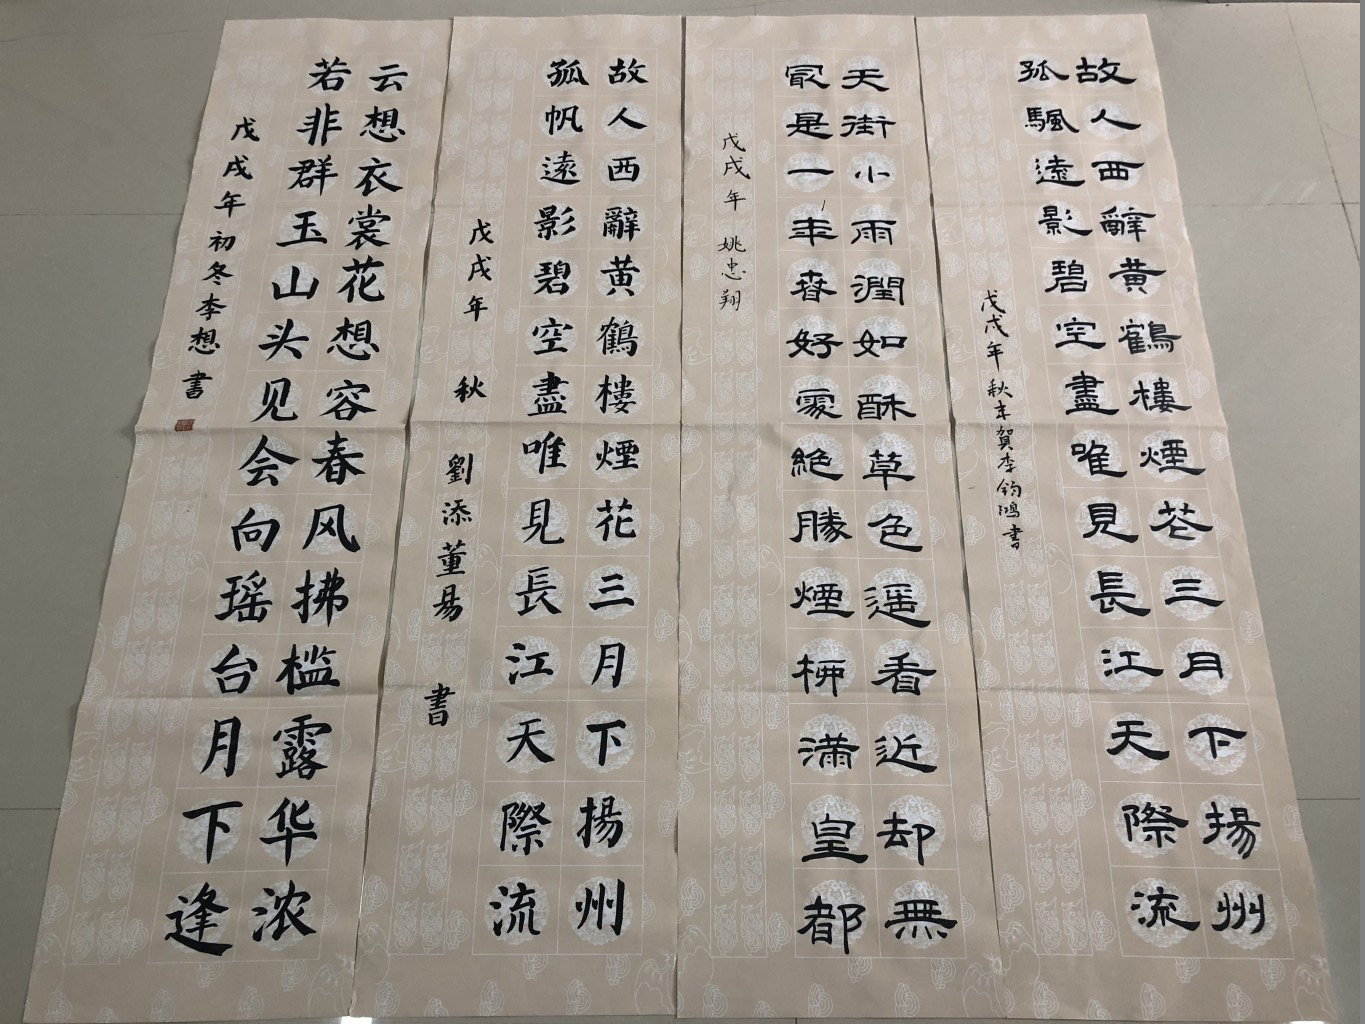 故人西辭黃鶴樓煙花三月下揚州
孤颿遠影碧空盡唯見長江天際流
戊戌年秋末賀李鈞鴻書
天街小雨潤如酥草色遥看近却無
冣是一年春好處絕勝煙柳滿皇都
戊戌年 姚忠翔
故人西辭黃鶴樓煙花三月下揚州
孤帆遠影碧空盡唯見長江天際流
戊戌年 秋 劉添董易 書
云想衣裳花想容春风拂槛露华浓
若非群玉山头见会向瑶台月下逢
戊戌年初冬李想書